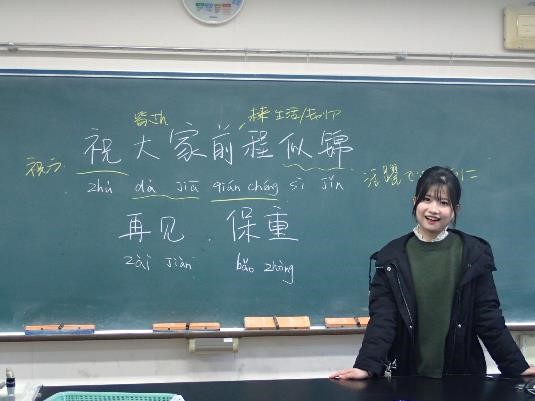 皆さん 未来 生活/キャリア
祝う 祝大家前程似锦 活躍で
zhù dà jiā qián chéng sì jǐn
再见.保重
zài jiàn bǎo zhòng